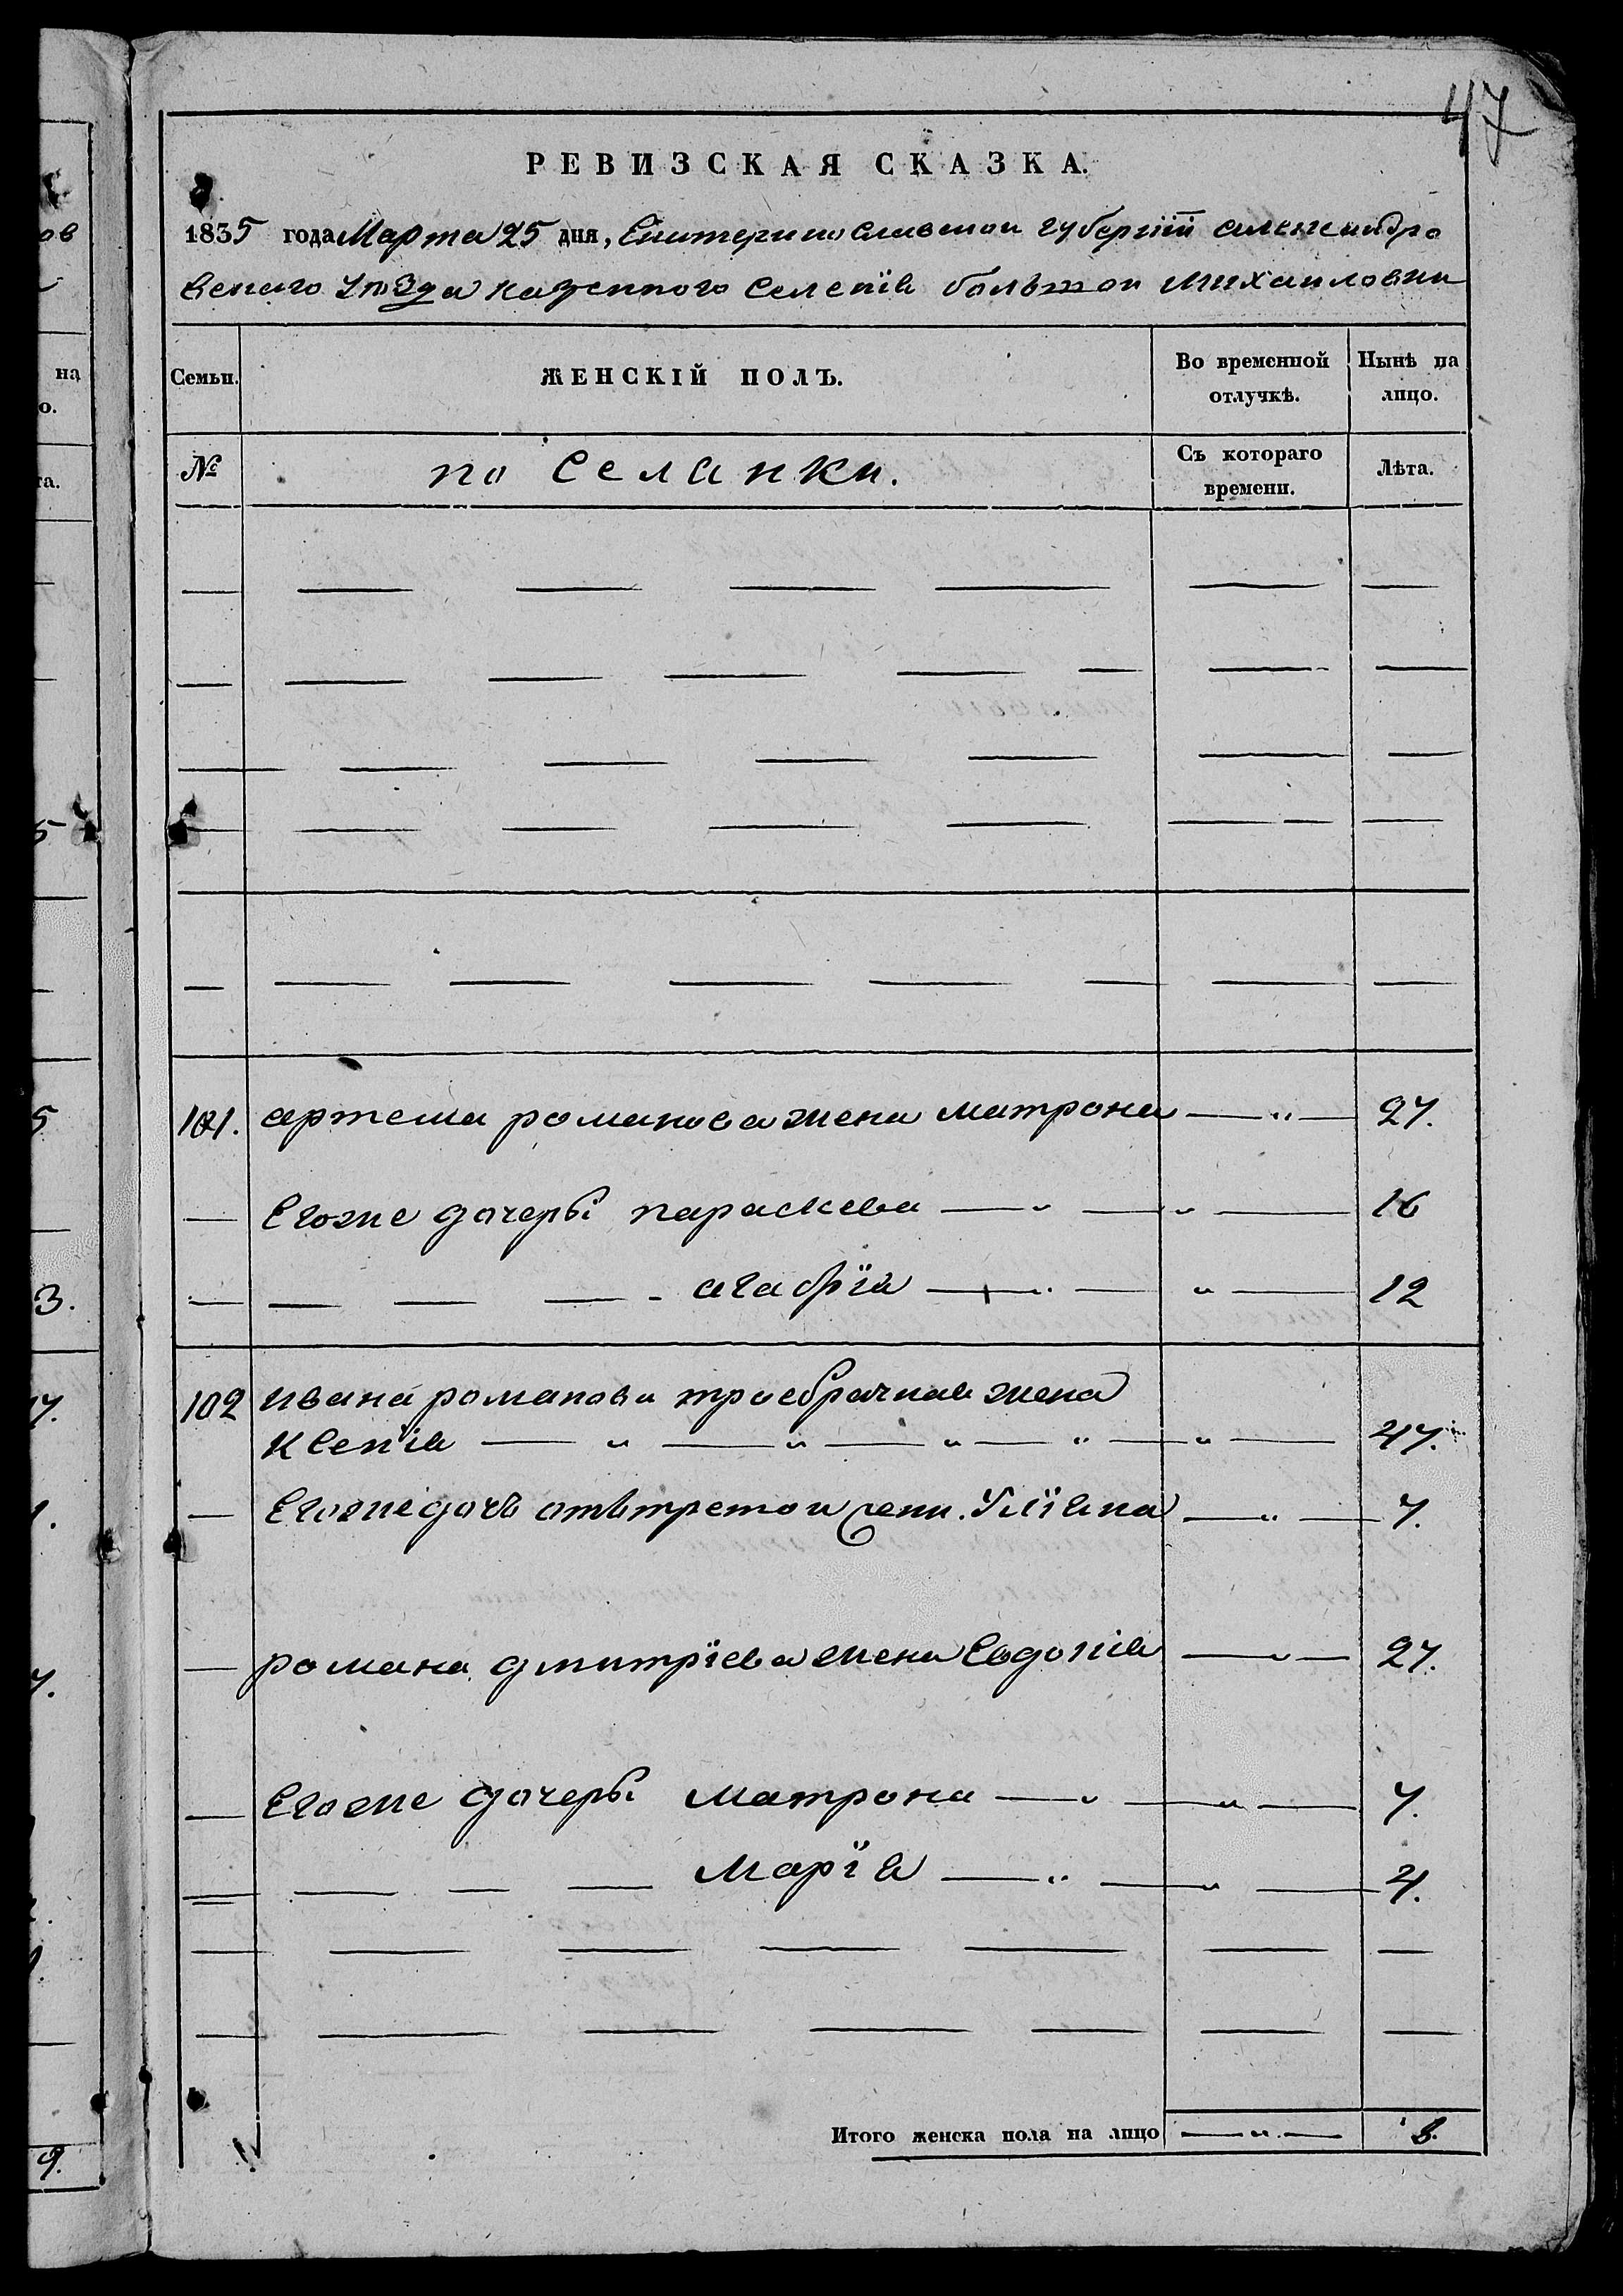 47
РЕВИЗСКАЯ СКАЗКА.
1835 года Марта 25 дня, Екатеринославской губернїи александро
вскаго уѣзда казенного Селенїя большой михайловки
Семьи. ЖЕНСКІЙ ПОЛЪ. Во временной отлучкѣ. Нынѣ на лицо.
№ поселянки. Съ котораго времени. Лѣта.
101. артема романова жена матрона — " — 27.
Егоже дочеры параскева — " — " — 16
агафїя — " — " — 12
102 ивана романова троебрачная жена
Ксенїя — " — " — " — " — " — 47.
Егоже дочь отътретой жени. Улїяна — " — 7.
романа дмитрїева жена Евдокїя — " — 27.
Егоже дочеры матрона — " — " — 7.
Марїя — " — " — 4.
Итого женска пола на лицо — " — 8.